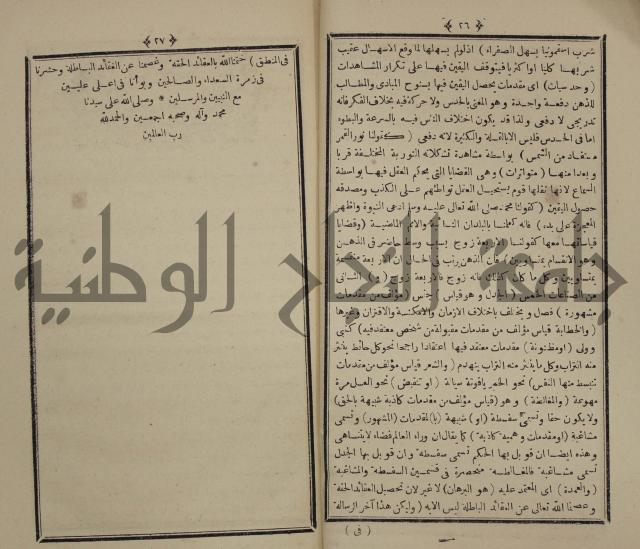 ﴿ ٢٦ ﴾
شرب السقمونيا يسهل الصفراء ) اذ لو لم يسهلها لما وقع الاسهال عقيب
شربها كليا او اكثريا فيتوقف اليقين فيها على تكرار المشاهدات
( وحدسيات ) اى مقدمات يحصل اليقين فيها بسنوح المبادى والمطالب
للذهن دفعة واحدة وهو المعنى بالحدس ولا حركة فيه بخلاف الفكر فانه
تدريجى لا دفعى ولذا قد يكون اختلاف الناس فيه بالسرعة والبطوء
اما فى الحدس فليس الا بالقلة والكثرة لانه دفعى ( كقولنا نور القمر
مستفاد من الشمس ) بواسطة مشاهدة تشكلاته النورية المختلفة قربا
وبعدا منها ( متواترات ) وهى القضايا التى يحكم العقل فيها بواسطة
السماع لانها نقلها قوم يستحيل العقل تواطئهم على الكذب ومصدقه
حصول اليقين ( كقولنا محمد صلى الله تعالى عليه وسلم ادعى النبوة واظهر
المعجزة على يده ) فانه كعلمنا بالبلدان النائية والامم الماضية ( وقضايا
قياساتها معها كقولنا الاربعة زوج بسبب وسط حاضر فى الذهن
وهو الانقسام بمتساويين ) فان الذهن يرتب فى الحال ان الاربعة منقسمة
بمتساويين وكل ما كان كذلك فانه زوج فالاربعة زوج ( و ) الثانى
من الصناعات الخمس ( الجدل وهو قياس ) جنس ( مؤلف من مقدمات
مشهورة ) فصل ويختلف باختلاف الازمان والامكنة والاقتران وغيرها
( والخطابة قياس مؤلف من مقدمات مقبولة من شخص معتقد فيه ) كنبى
وولى ( او مظنونة ) مقدمات معتقد فيها اعتقادا راجحا نحو كل حائط ينتثر
منه التراب وكل ما ينتثر منه التراب ينهدم ( والشعر قياس مؤلف من مقدمات
تنبسط منها النفس ) نحو الخمر ياقوتة سيالة ( او تنقبض ) نحو العسل مرة
مهوعة ( والمغالطة ) وهو ( قياس مؤلف من مقدمات كاذبة شبيهة بالحق )
ولا يكون حقا وتسمى سفسطة ( او ) شبيهة ( با ) لمقدمات ( المشهور ) وتسمى
مشاغبة ( او مقدمات وهمية كاذبة ) كما يقال ان وراء العالم فضاء لا يتناهى
وهذه ايضا ان قوبل بها الحكيم تسمى سفسطة وان قوبل بها الجدل
تسمى مشاغبة فالمغالطة منحصرة فى قسمين السفسطة والمشاغبة
( والعمدة ) اى المعتمد عليه ( هو البرهان ) لا غير لان تحصيل العقائد الحقة
وعصمنا الله تعالى عن العقائد الباطلة ليس الا به ( وليكن هذا آخر الرسالة
( فى )
﴿ ٢٧ ﴾
فى المنطق ) ختمنا الله بالعقائد الحقة وعصمنا عن العقائد الباطلة وحشرنا
فى زمرة السعداء والصالحين وبوأنا فى اعلى عليين
مع النبيين والمرسلين * وصلى الله على سيدنا
محمد وآله وصحبه اجمعين والحمد لله
رب العالمين
جامعة النجاح الوطنية